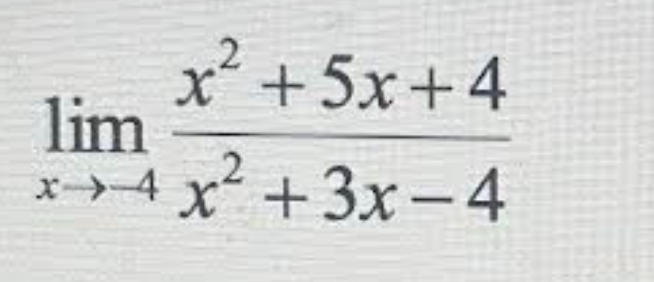 lim x→-4 (x² + 5x + 4) / (x² + 3x - 4)